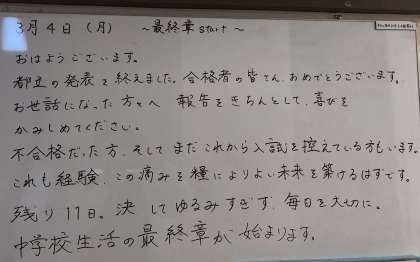 3月4日(月) ~最終章start~
おはようございます。
都立の発表を終えました。合格者の皆さん、おめでとうございます。
お世話になった方々へ 報告をきちんとして、喜びを
かみしめてください。
不合格だった方、そして まだ これから入試を控えている方もいます。
これも経験、この痛みを糧によりよい未来を築けるはずです。
残り11日。決してゆるみすぎず、毎日を大切に。
中学校生活の最終章が始まります。